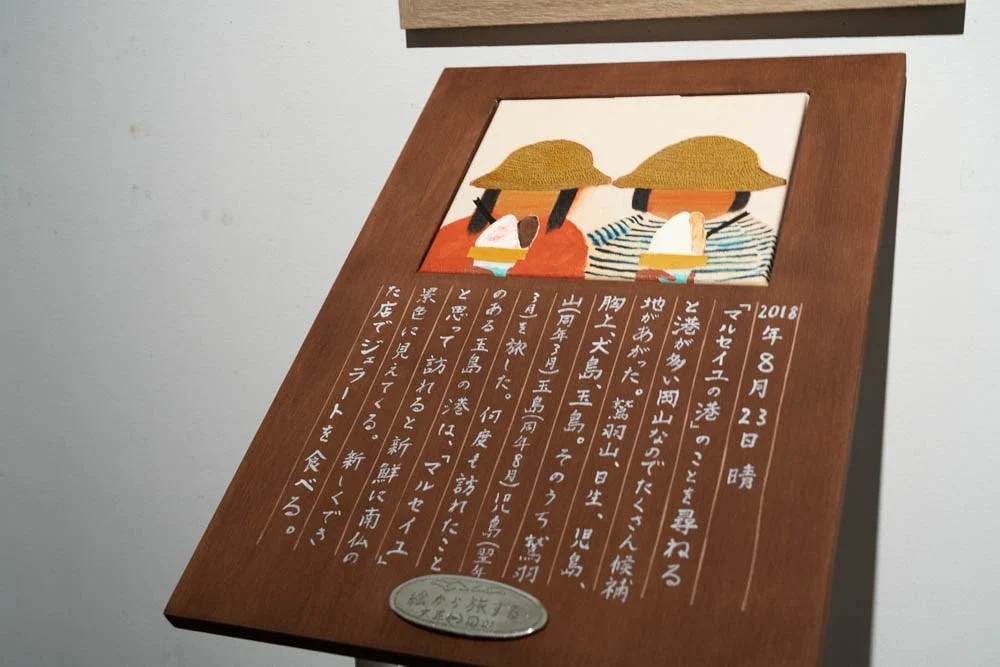 2018年8月23日 晴
「マルセイユの港」のことを尋ねる
と港が多い岡山なのでたくさん候補
地があがった。鷲羽山、日生、児島、
胸上、犬島、玉島。そのうち鷲羽
山(同年3月)玉島(同年8月)児島(翌年
3月)を旅した。何度も訪れたこと
のある玉島の港は、「マルセイユ」
と思って訪れると新鮮に南仏の
景色に見えてくる。新しくでき
た店でジェラートを食べる。
絵から旅する